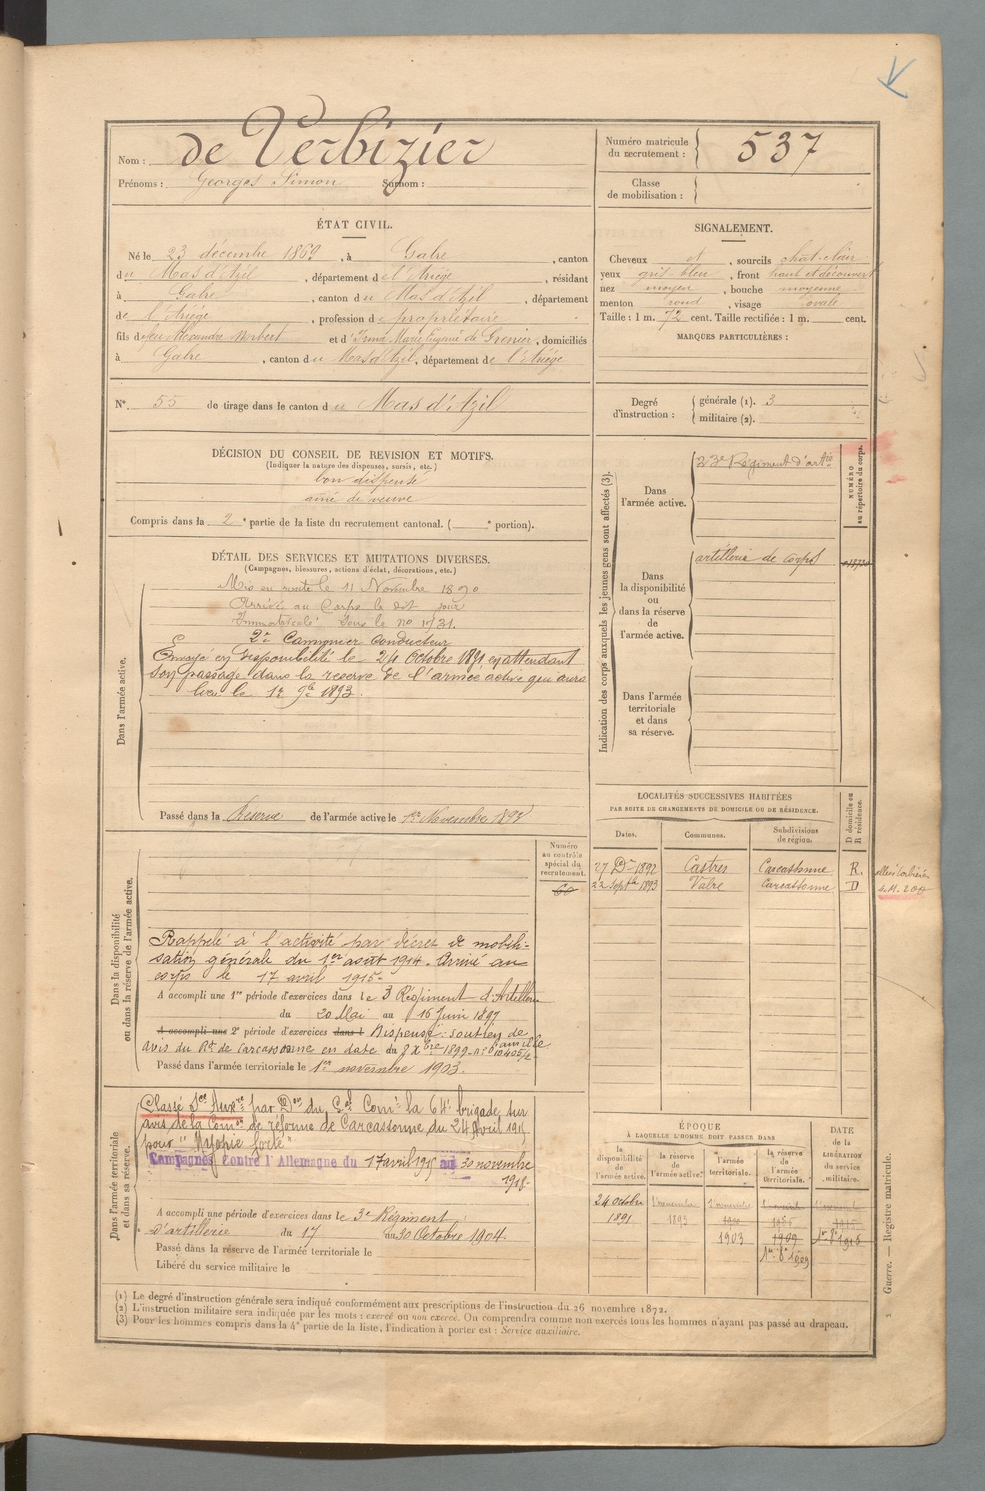 Nom : de Verbizier
Prénoms : Georges Simon Surnom :
Numéro matricule du recrutement : 537
Classe de mobilisation :
ÉTAT CIVIL.
Né le 23 décembre 1869, à Gabre, canton
du Mas d'Azil, département de l'Ariège, résidant
à Gabre, canton du Mas d'Azil, département
de l'Ariège, profession de propriétaire
fils de feu Alexandre Norbert et d'Irma Marie Eugénie de Grenier, domiciliés
à Gabre, canton du Mas d'Azil, département de l'Ariège
N° 55 de tirage dans le canton du Mas d'Azil
SIGNALEMENT.
Cheveux et, sourcils chat-clair
yeux gris-bleu, front haut et découvert
nez moyen, bouche moyenne
menton rond, visage ovale
Taille : 1 m. 72 cent. Taille rectifiée : 1 m. cent.
MARQUES PARTICULIÈRES :
Degré d'instruction : générale (1). 3
militaire (2).
DÉCISION DU CONSEIL DE REVISION ET MOTIFS.
(Indiquer la nature des dispenses, sursis, etc.)
bon dispensé
aîné de veuve
Compris dans la 2e partie de la liste du recrutement cantonal. ( e portion).
DÉTAIL DES SERVICES ET MUTATIONS DIVERSES.
(Campagnes, blessures, actions d'éclat, décorations, etc.)
Dans l'armée active.
Mis en route le 11 Novembre 1890
Arrivé au Corps le dit jour
Immatriculé sous le no 1731.
2e Cannonier Conducteur
Envoyé en disponibilité le 24 Octobre 1891 en attendant
son passage dans la réserve de l'armée active qui aura
lieu le 1er 9bre 1893.
Passé dans la Réserve de l'armée active le 1er Novembre 1893
Indication des corps auxquels les jeunes gens sont affectés (3).
NUMÉRO au répertoire du corps.
Dans l'armée active.
23e Régiment d'artie
Dans la disponibilité ou dans la réserve de l'armée active.
artillerie de corps
Dans l'armée territoriale et dans sa réserve.
LOCALITÉS SUCCESSIVES HABITÉES
PAR SUITE DE CHANGEMENTS DE DOMICILE OU DE RÉSIDENCE.
D domicile ou R résidence.
Dates. Communes. Subdivisions de région.
27 Dre 1892 Castres Carcassonne R.
22 Septbre 1893 Valre Carcassonne D
S.M. 200
Dans la disponibilité ou dans la réserve de l'armée active.
Numéro au contrôle spécial du recrutement.
60
Rappelé à l'activité par décret de mobili-
sation générale du 1er août 1914. Arrivé au
corps le 17 avril 1915.
A accompli une 1re période d'exercices dans le 3 Régiment d'Artillerie
du 20 Mai au 16 Juin 1897
A accompli une 2e période d'exercices dans l Dispensé : soutien de famille
avis du Rt de Carcassonne en date du 8 Xbre 1899
Passé dans l'armée territoriale le 1er novembre 1903.
Dans l'armée territoriale et dans sa réserve.
Classé Sce Auxre par Don du Gal Comt la 64e brigade, sur
avis de la Comon de réforme de Carcassonne, du 24 Avril 1915
pour "Myopie forte"
Campagnes Contre l'Allemagne du 17 avril 1915 au 30 novembre
1918.
A accompli une période d'exercices dans le 3e Régiment
d'artillerie du 17 au 30 Octobre 1904.
Passé dans la réserve de l'armée territoriale le
Libéré du service militaire le
ÉPOQUE
À LAQUELLE L'HOMME DOIT PASSER DANS
DATE de la LIBÉRATION du service militaire.
la disponibilité de l'armée active.
la réserve de l'armée active.
l'armée territoriale.
la réserve de l'armée territoriale.
24 octobre 1891
1er novembre 1893
1er novembre 1900
1903
1909
1er 8bre 1909
(1) Le degré d'instruction générale sera indiqué conformément aux prescriptions de l'instruction du 26 novembre 1872.
(2) L'instruction militaire sera indiquée par les mots : exercé ou non exercé. On comprendra comme non exercés tous les hommes n'ayant pas passé au drapeau.
(3) Pour les hommes compris dans la 4e partie de la liste, l'indication à porter est : Service auxiliaire.
Guerre. — Registre matricule.